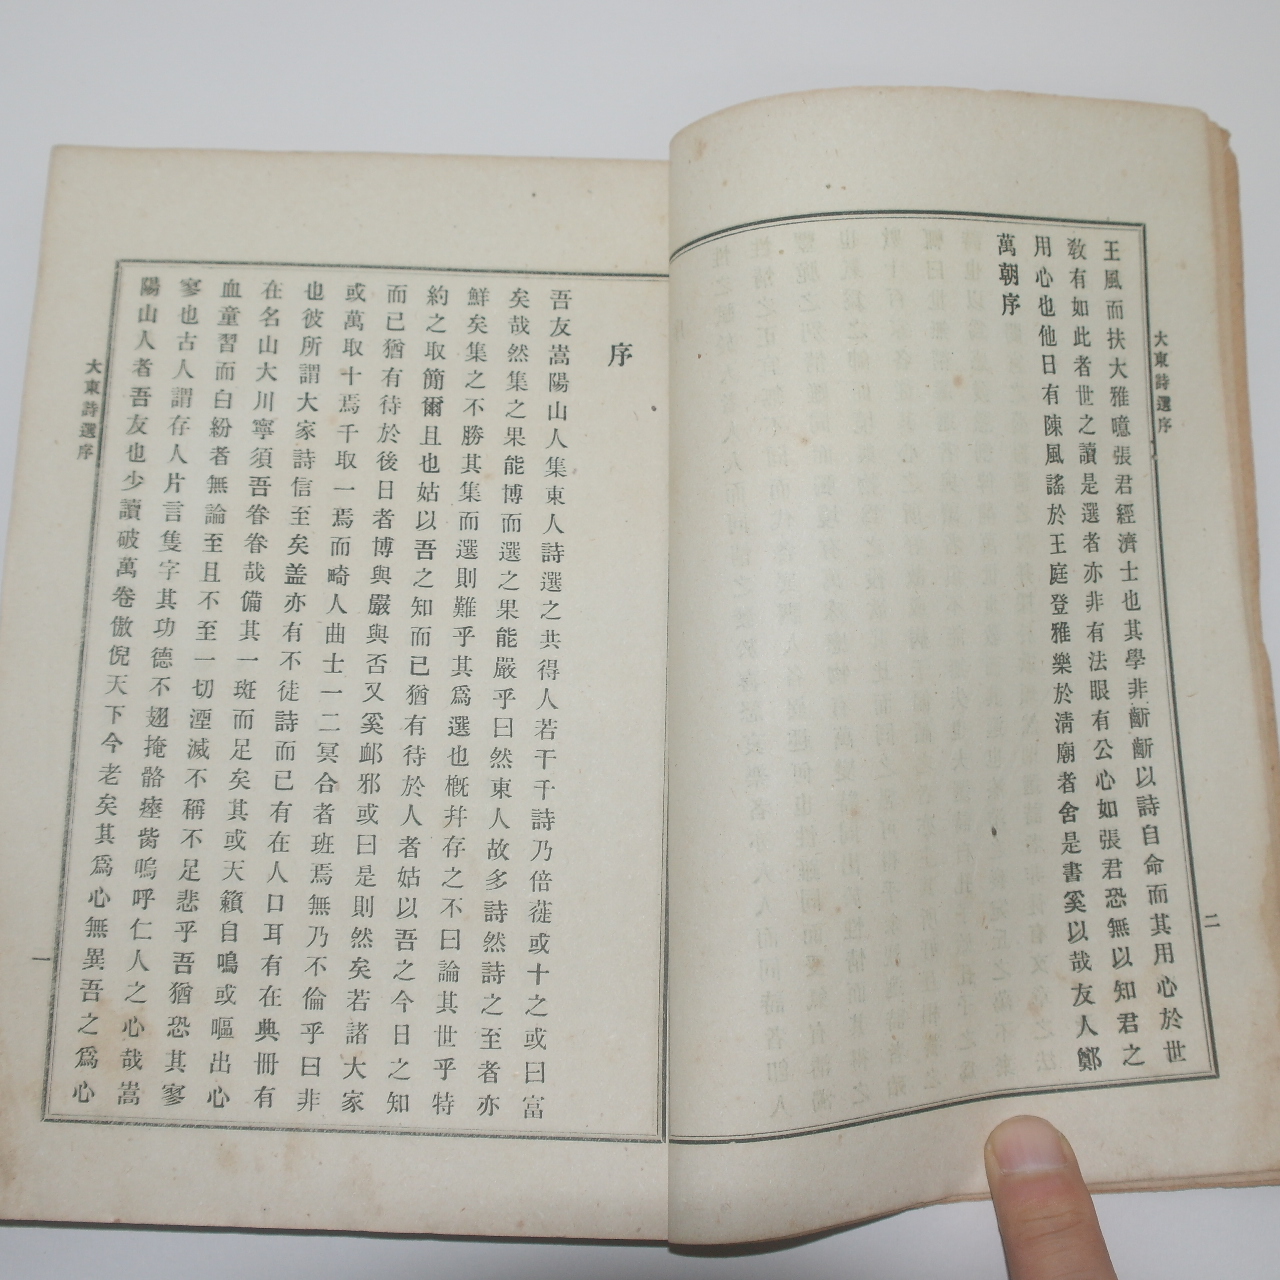 大東詩選序
二
王風而扶大雅噫張君經濟士也其學非齗齗以詩自命而其用心於世
敎有如此者世之讀是選者亦非有法眼有公心如張君恐無以知君之
用心也他日有陳風謠於王庭登雅樂於淸廟者舍是書奚以哉友人鄭
萬朝序
序
吾友嵩陽山人集東人詩選之共得人若干千詩乃倍蓰或十之或曰富
矣哉然集之果能博而選之果能嚴乎曰然東人故多詩然詩之至者亦
鮮矣集之不勝其集而選則難乎其爲選也槪幷存之不曰論其世乎特
約之取簡爾且也姑以吾之知而已猶有待於人者姑以吾之今日之知
而已猶有待於後日者博與嚴與否又奚卹邪或曰是則然矣若諸大家
或萬取十焉千取一焉而畸人曲士一二冥合者班焉無乃不倫乎曰非
也彼所謂大家詩信至矣盖亦有不徒詩而已有在人口耳有在典冊有
在名山大川寧須吾眷眷哉備其一斑而足矣其或天籟自鳴或嘔出心
血童習而白紛者無論至且不至一切湮滅不稱不足悲乎吾猶恐其寥
寥也古人謂存人片言隻字其功德不翅掩骼瘞胔嗚呼仁人之心哉嵩
陽山人者吾友也少讀破萬卷傲倪天下今老矣其爲心無異吾之爲心
大東詩選序
一